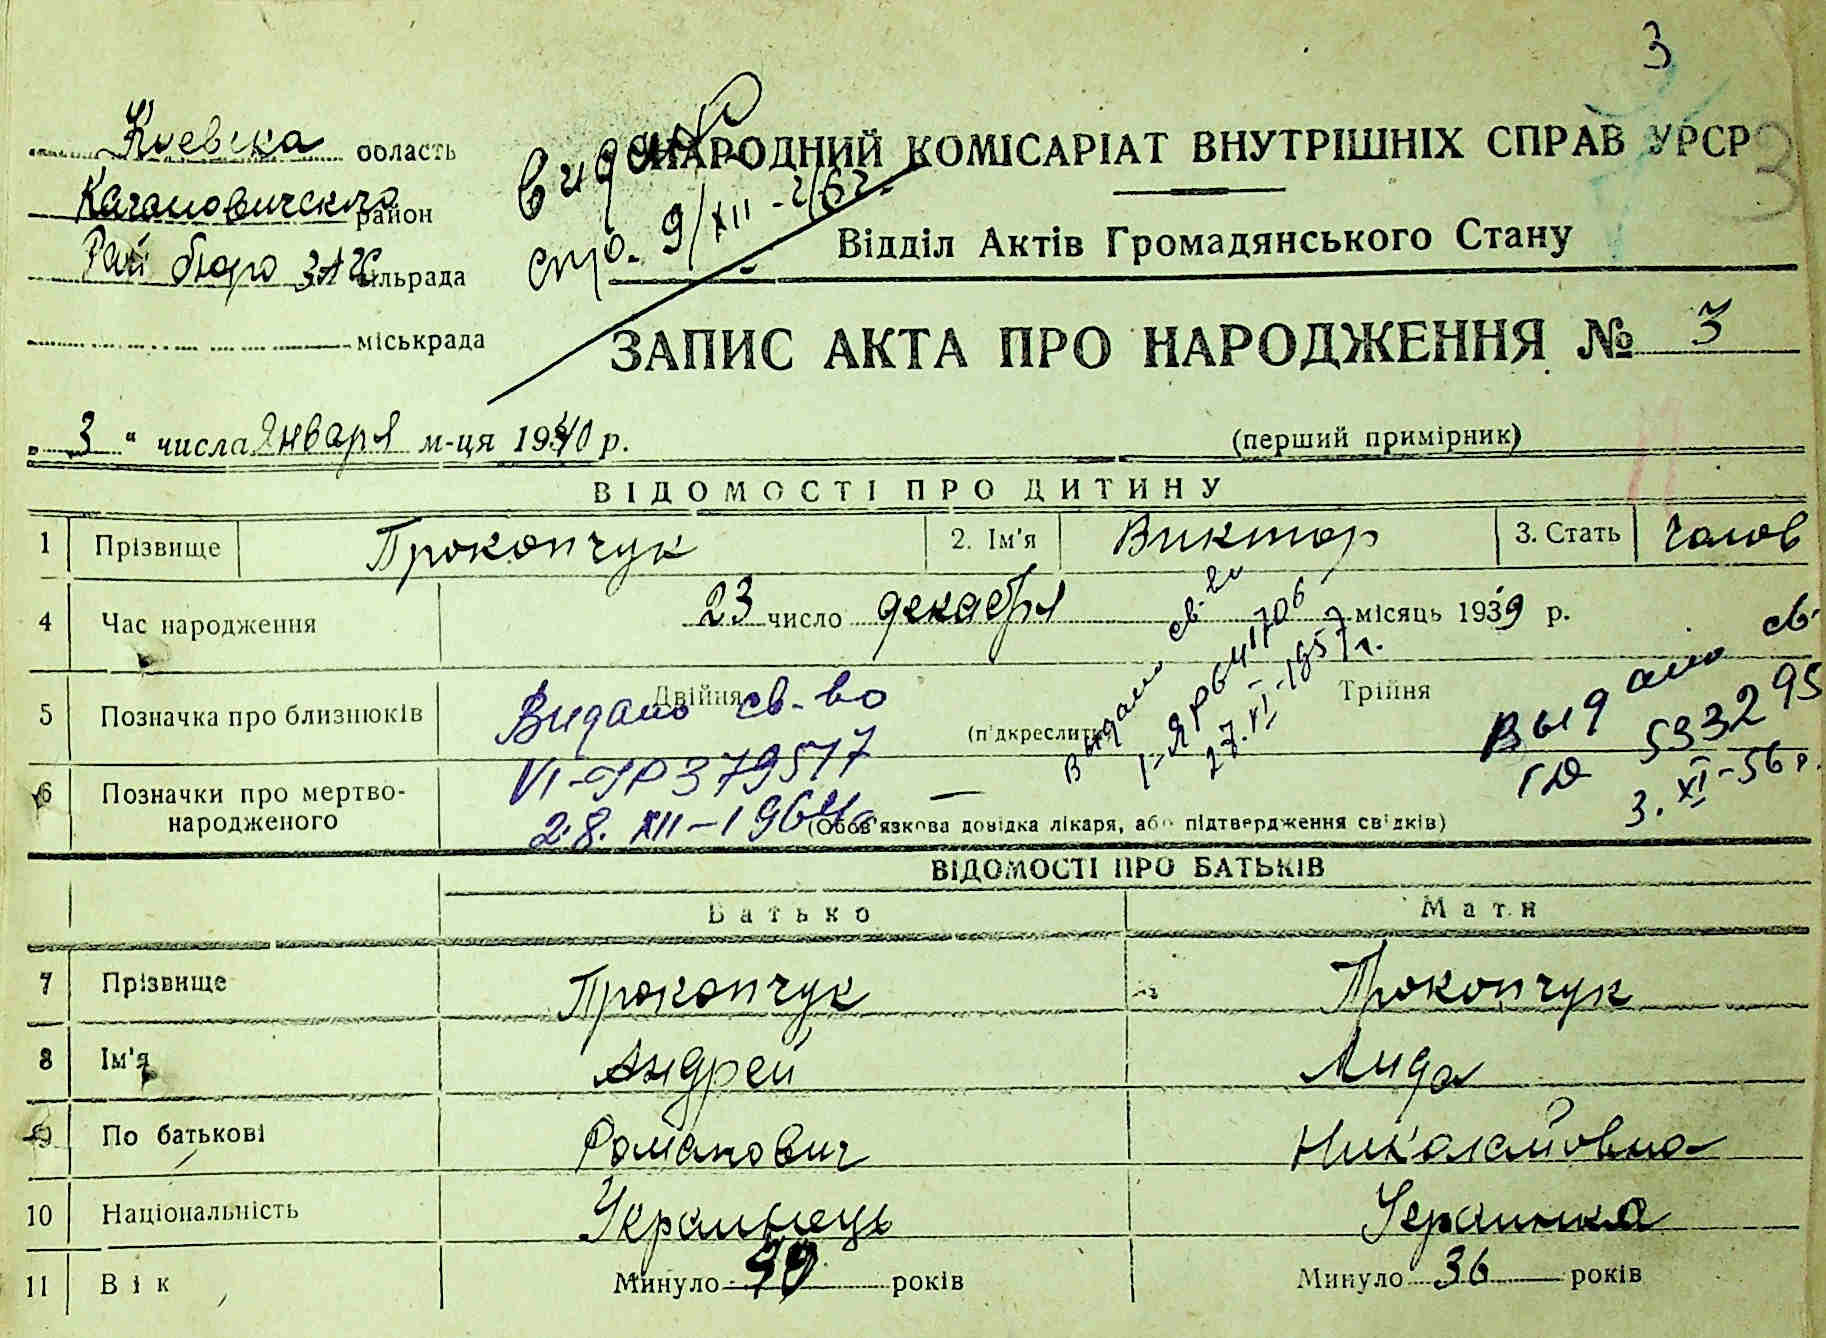 3
Киевска область
НАРОДНИЙ КОМІСАРІАТ ВНУТРІШНІХ СПРАВ УРСР
3
Кагановическ район
Видано
спр. 9/XII-
Відділ Актів Громадянського Стану
Рай бюро ЗАГС сільрада
міськрада
ЗАПИС АКТА ПРО НАРОДЖЕННЯ № 3
„3“ числа Января м-ця 1940 р.
(перший примірник)
ВІДОМОСТІ ПРО ДИТИНУ
1 Прізвище Прокопчук 2. Ім'я Виктор 3. Стать чолов
4 Час народження 23 число декабря місяць 1939 р.
5 Позначка про близнюків Двійня (підкреслити) Трійня
Видано св-во
VI-ЯР 379517
28.XII-1964
Выдано св-во
I-ЯР 641706
27.XI-1957 г.
Выдано св-
ГД 533295
3.XI-56 г.
6 Позначки про мертво-
народженого —
(Обов'язкова довідка лікаря, або підтвердження свідків)
ВІДОМОСТІ ПРО БАТЬКІВ
Батько Мати
7 Прізвище Прокопчук Прокопчук
8 Ім'я Андрей Лида
9 По батькові Романович Николаевна
10 Національність Украинець Украинка
11 Вік Минуло 40 років Минуло 36 років